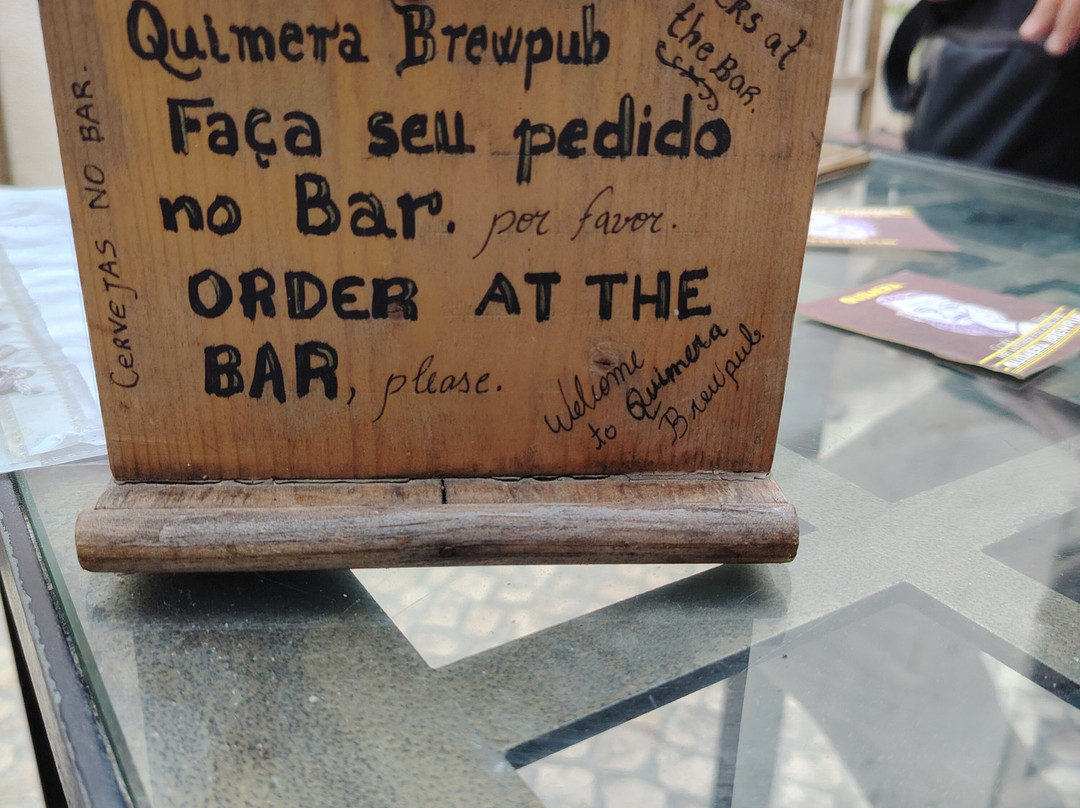 Quimera Brewpub
Faça seu pedido
no Bar. por favor.
ORDER AT THE
BAR, please.
Welcome
to Quimera
Brewpub.
CERVEJAS NO BAR.
at
the BAR.
QUIMERA
QUIMERA BREWPUB